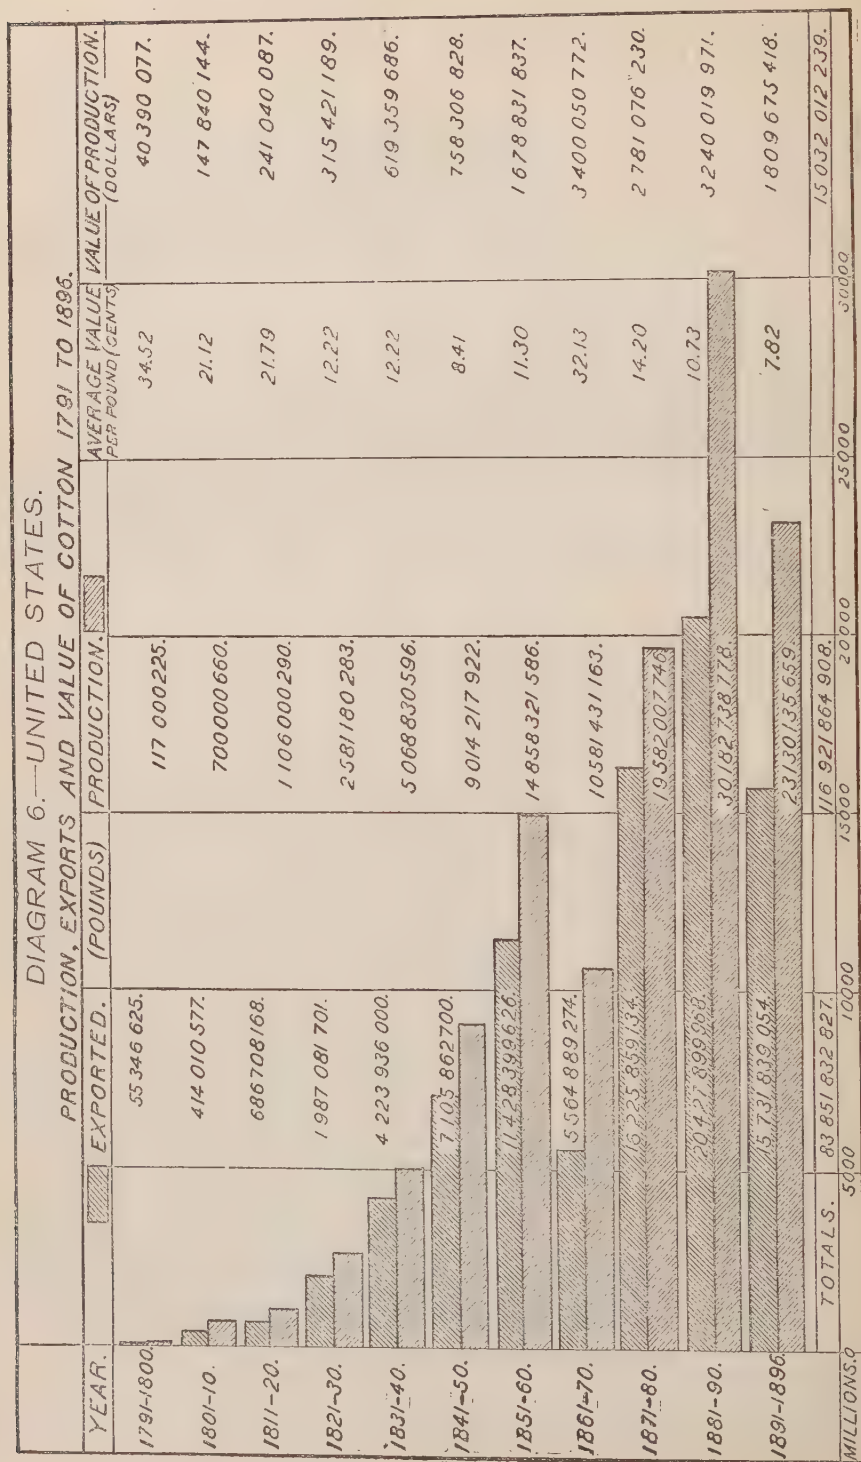 DIAGRAM 6.—UNITED STATES.
PRODUCTION, EXPORTS AND VALUE OF COTTON 1791 TO 1896.
YEAR. EXPORTED. (POUNDS) PRODUCTION. AVERAGE VALUE PER POUND (CENTS) VALUE OF PRODUCTION. (DOLLARS)
1791-1800. 55 346 625. 117 000225. 34.52 40 390 077.
1801-10. 414 010 577. 700000660. 21.12 147 840 144.
1811-20. 686708168. 1106000290. 21.79 241 040 087.
1821-30. 1987 081 701. 2581180 283. 12.22 315 421 189.
1831-40. 4 223 936 000. 5068 830596. 12.22 619 359 686.
1841-50. 7105 862700. 9014 217 922. 8.41 758 306 828.
1851-60. 11428399626. 14858321586. 11.30 1678 831 837.
1861-70. 5564 889274. 10581431163. 32.13 3400 050 772.
1871-80. 16225859134. 19582007746. 14.20 2 781 076 230.
1881-90. 20427899968. 30182738778. 10.73 3240 019 971.
1891-1896. 15731839054. 23130135659. 7.82 1809675418.
TOTALS. 83 851 832 827. 116 921 864 908. 15 032 012 239.
MILLIONS. 0 5000 10000 15000 20000 25000 30000